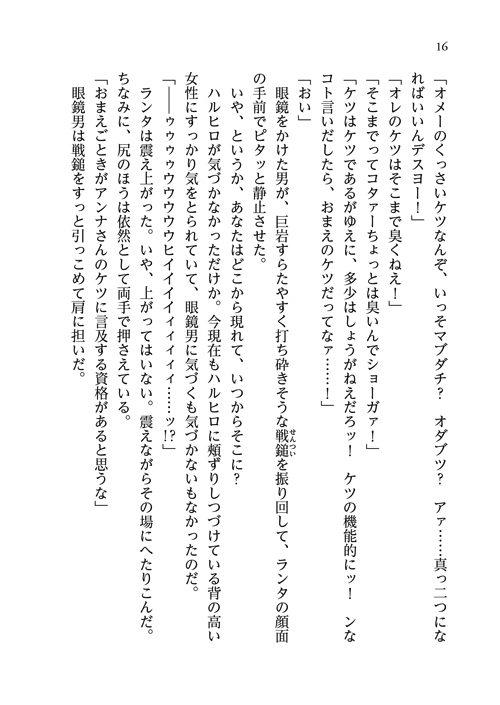 16
「オメーのくっさいケツなんぞ、いっそマブダチ?　オダブツ?　アァ……真っ二つにな
ればいいんデスヨー!」
「オレのケツはそこまで臭くねえ!」
「そこまでってコタァーちょっとは臭いんでショーガァ!」
「ケツはケツであるがゆえに、多少はしょうがねえだろッ!　ケツの機能的にッ!　ンな
コト言いだしたら、おまえのケツだってなァ……!」
「おい」
　眼鏡をかけた男が、巨岩すらたやすく打ち砕きそうな戦鎚せんついを振り回して、ランタの顔面
の手前でピタッと静止させた。
　いや、というか、あなたはどこから現れて、いつからそこに?
　ハルヒロが気づかなかっただけか。今現在もハルヒロに頬ずりしつづけている背の高い
女性にすっかり気をとられていて、眼鏡男に気づくも気づかないもなかったのだ。
「――ゥゥゥゥウウウウウヒイイイイィィィィ……ッ!?」
　ランタは震え上がった。いや、上がってはいない。震えながらその場にへたりこんだ。
ちなみに、尻のほうは依然として両手で押さえている。
「おまえごときがアンナさんのケツに言及する資格があると思うな」
　眼鏡男は戦鎚をすっと引っこめて肩に担いだ。